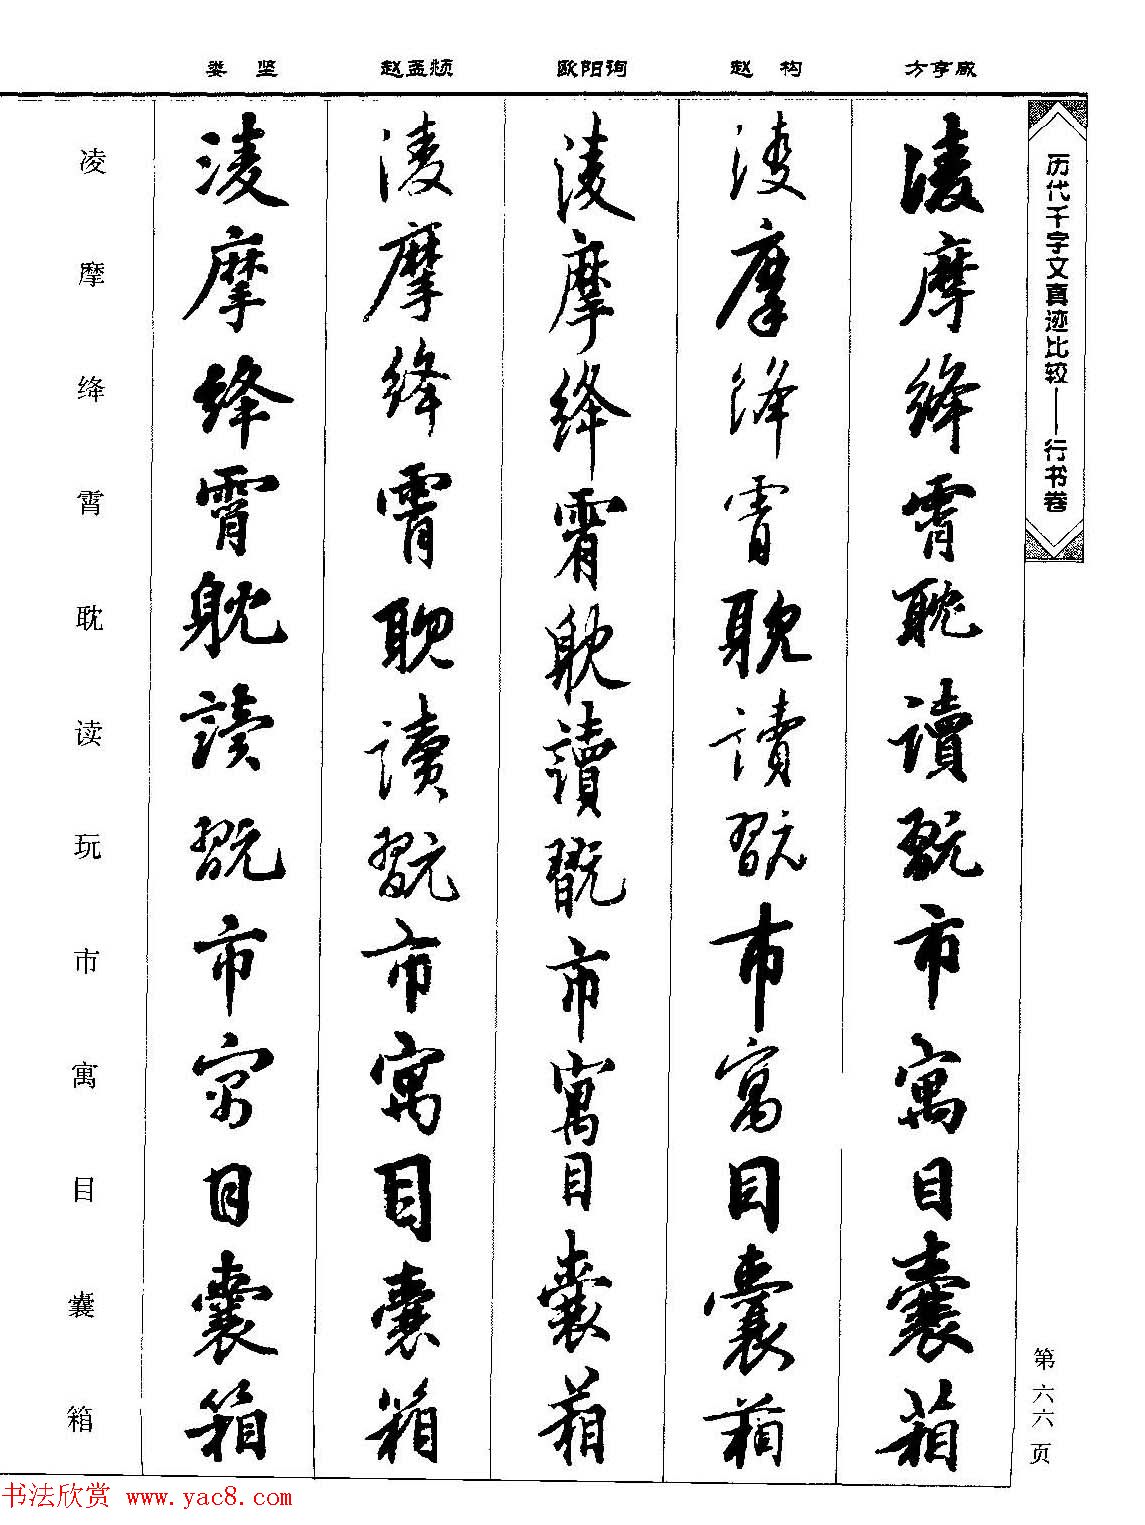 历代千字文真迹比较——行书卷
第六六页
方亨咸
淩摩絳霄耽讀翫市寓目囊箱
赵构
淩摩絳霄耽讀翫市寓目囊箱
欧阳询
淩摩絳霄躭讀翫市寓目囊箱
赵孟頫
淩摩絳霄耽讀翫市寓目囊箱
娄坚
淩摩絳霄躭讀翫市寓目囊箱
凌摩绛霄耽读玩市寓目囊箱
书法欣赏 www.yac8.com